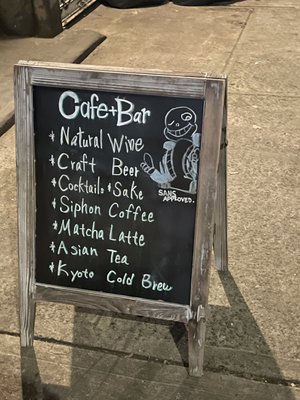 Cafe+Bar
* Natural Wine
* Craft Beer
* Cocktails * Sake
* Siphon Coffee
* Matcha Latte
* Asian Tea
* Kyoto Cold Brew
SANS
APPROVED.